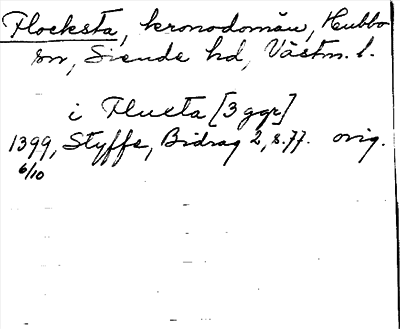 Flocksta, kronodomän, Hubbo
sn, Siende hd, Västm. l.
i Flucta [3 ggr]
1399, Styffe, Bidrag 2, s. 77. orig.
6/10